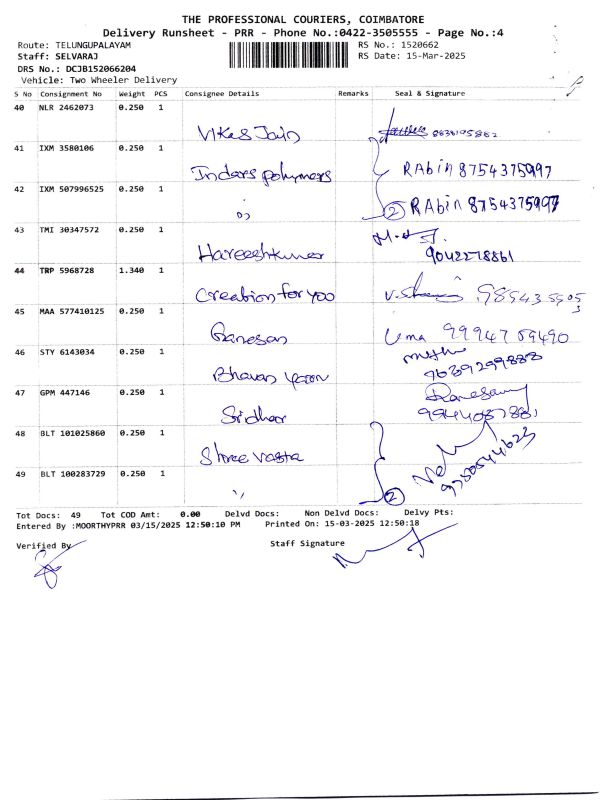 THE PROFESSIONAL COURIERS, COIMBATORE
Delivery Runsheet - PRR - Phone No.:0422-3505555 - Page No.:4
Route: TELUNGUPALAYAM RS No.: 1520662
Staff: SELVARAJ RS Date: 15-Mar-2025
DRS No.: DCJB152066204
Vehicle: Two Wheeler Delivery
S No Consignment No Weight PCS Consignee Details Remarks Seal & Signature
40 NLR 2462073 0.250 1
Vikas Jain
41 IXM 3580106 0.250 1
Indars polymers RAbin 8754375997
42 IXM 507996525 0.250 1
② RAbin 8754375997
43 TMI 30347572 0.250 1
Hareeshkumar 9042278861
44 TRP 5968728 1.340 1
Creation for you
45 MAA 577410125 0.250 1
Ganesan Uma
46 STY 6143034 0.250 1
Bhavan
47 GPM 447146 0.250 1
Sridhar
48 BLT 101025860 0.250 1
Shree Vastra
49 BLT 100283729 0.250 1
②
Tot Docs: 49 Tot COD Amt: 0.00 Delvd Docs: Non Delvd Docs: Delvy Pts:
Entered By :MOORTHYPRR 03/15/2025 12:50:10 PM Printed On: 15-03-2025 12:50:18
Verified By Staff Signature